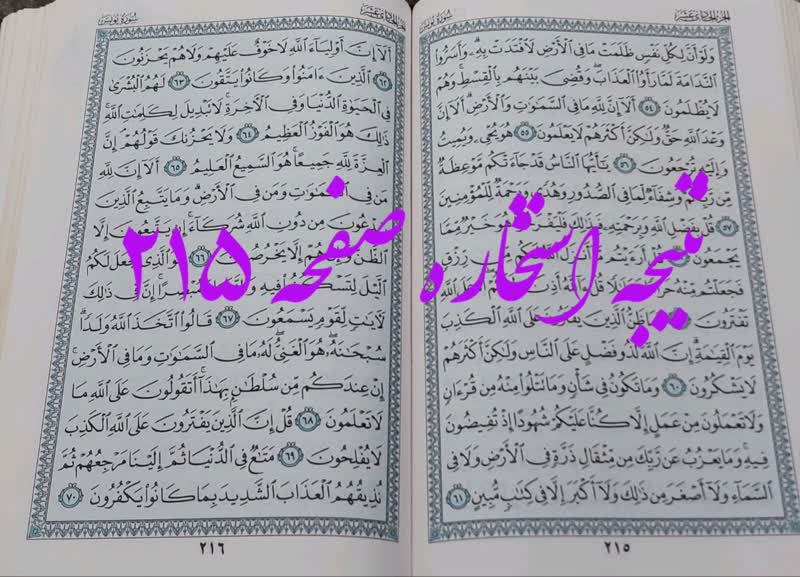 الجزء الحادي عشر
سورة يونس
وَلَوْ أَنَّ لِكُلِّ نَفْسٍ ظَلَمَتْ مَا فِي الْأَرْضِ لَافْتَدَتْ بِهِ وَأَسَرُّوا
النَّدَامَةَ لَمَّا رَأَوُا الْعَذَابَ وَقُضِيَ بَيْنَهُم بِالْقِسْطِ وَهُمْ
لَا يُظْلَمُونَ ٥٤ أَلَا إِنَّ لِلَّهِ مَا فِي السَّمَاوَاتِ وَالْأَرْضِ أَلَا إِنَّ
وَعْدَ اللَّهِ حَقٌّ وَلَٰكِنَّ أَكْثَرَهُمْ لَا يَعْلَمُونَ ٥٥ هُوَ يُحْيِي وَيُمِيتُ
وَإِلَيْهِ تُرْجَعُونَ ٥٦ يَا أَيُّهَا النَّاسُ قَدْ جَاءَتْكُم مَّوْعِظَةٌ
مِّن رَّبِّكُمْ وَشِفَاءٌ لِّمَا فِي الصُّدُورِ وَهُدًى وَرَحْمَةٌ لِّلْمُؤْمِنِينَ
٥٧ قُلْ بِفَضْلِ اللَّهِ وَبِرَحْمَتِهِ فَبِذَٰلِكَ فَلْيَفْرَحُوا هُوَ خَيْرٌ مِّمَّا
يَجْمَعُونَ قُلْ أَرَأَيْتُم مَّا أَنزَلَ اللَّهُ لَكُم مِّن رِّزْقٍ
فَجَعَلْتُم مِّنْهُ حَلَالًا قُلْ آللَّهُ أَذِنَ لَكُمْ أَمْ عَلَى اللَّهِ
تَفْتَرُونَ وَمَا ظَنُّ الَّذِينَ يَفْتَرُونَ عَلَى اللَّهِ الْكَذِبَ
يَوْمَ الْقِيَامَةِ إِنَّ اللَّهَ لَذُو فَضْلٍ عَلَى النَّاسِ وَلَٰكِنَّ أَكْثَرَهُمْ
لَا يَشْكُرُونَ ٦٠ وَمَا تَكُونُ فِي شَأْنٍ وَمَا تَتْلُو مِنْهُ مِن قُرْآنٍ
وَلَا تَعْمَلُونَ مِنْ عَمَلٍ إِلَّا كُنَّا عَلَيْكُمْ شُهُودًا إِذْ تُفِيضُونَ
فِيهِ وَمَا يَعْزُبُ عَن رَّبِّكَ مِن مِّثْقَالِ ذَرَّةٍ فِي الْأَرْضِ وَلَا فِي
السَّمَاءِ وَلَا أَصْغَرَ مِن ذَٰلِكَ وَلَا أَكْبَرَ إِلَّا فِي كِتَابٍ مُّبِينٍ ٦١
٢١٥
الجزء الحادي عشر
سورة يونس
أَلَا إِنَّ أَوْلِيَاءَ اللَّهِ لَا خَوْفٌ عَلَيْهِمْ وَلَا هُمْ يَحْزَنُونَ
٦٢ الَّذِينَ آمَنُوا وَكَانُوا يَتَّقُونَ ٦٣ لَهُمُ الْبُشْرَىٰ
فِي الْحَيَاةِ الدُّنْيَا وَفِي الْآخِرَةِ لَا تَبْدِيلَ لِكَلِمَاتِ اللَّهِ
ذَٰلِكَ هُوَ الْفَوْزُ الْعَظِيمُ ٦٤ وَلَا يَحْزُنكَ قَوْلُهُمْ إِنَّ
الْعِزَّةَ لِلَّهِ جَمِيعًا هُوَ السَّمِيعُ الْعَلِيمُ ٦٥ أَلَا إِنَّ لِلَّهِ
مَن فِي السَّمَاوَاتِ وَمَن فِي الْأَرْضِ وَمَا يَتَّبِعُ الَّذِينَ
يَدْعُونَ مِن دُونِ اللَّهِ شُرَكَاءَ إِن يَتَّبِعُونَ إِلَّا
الظَّنَّ وَإِنْ هُمْ إِلَّا يَخْرُصُونَ ٦٦ هُوَ الَّذِي جَعَلَ لَكُمُ
اللَّيْلَ لِتَسْكُنُوا فِيهِ وَالنَّهَارَ مُبْصِرًا إِنَّ فِي ذَٰلِكَ
لَآيَاتٍ لِّقَوْمٍ يَسْمَعُونَ ٦٧ قَالُوا اتَّخَذَ اللَّهُ وَلَدًا
سُبْحَانَهُ هُوَ الْغَنِيُّ لَهُ مَا فِي السَّمَاوَاتِ وَمَا فِي الْأَرْضِ
إِنْ عِندَكُم مِّن سُلْطَانٍ بِهَٰذَا أَتَقُولُونَ عَلَى اللَّهِ مَا
لَا تَعْلَمُونَ ٦٨ قُلْ إِنَّ الَّذِينَ يَفْتَرُونَ عَلَى اللَّهِ الْكَذِبَ
لَا يُفْلِحُونَ ٦٩ مَتَاعٌ فِي الدُّنْيَا ثُمَّ إِلَيْنَا مَرْجِعُهُمْ ثُمَّ
نُذِيقُهُمُ الْعَذَابَ الشَّدِيدَ بِمَا كَانُوا يَكْفُرُونَ ٧٠
٢١٦
نتیجه استخاره صفحه ۲۱۵